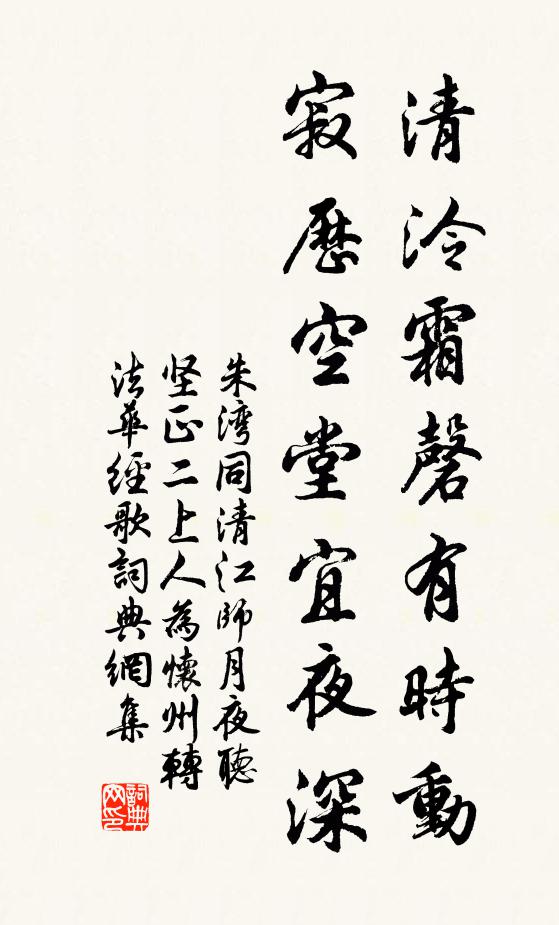 清泠霜磬有時動
寂歷空堂宜夜深
朱湾同清江師月夜聽
坚正二上人為懷州轉
法華經歌詞典網集
詞典
网印